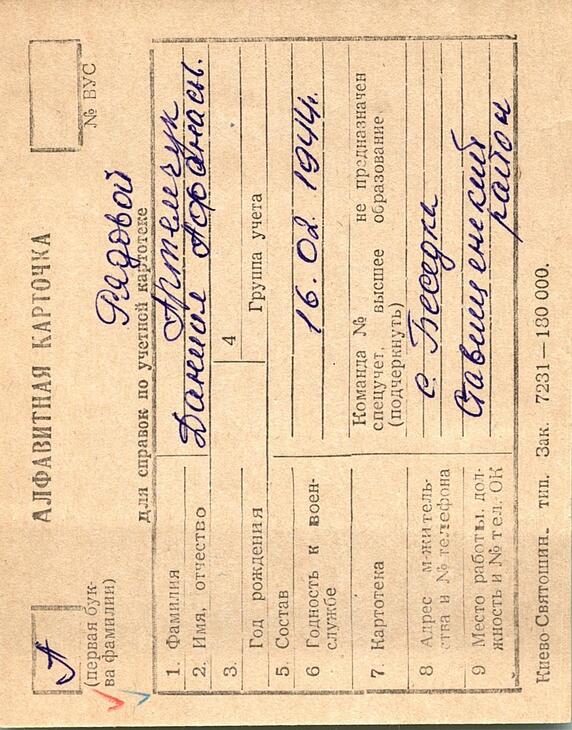 АЛФАВИТНАЯ КАРТОЧКА
А
(первая бук-
ва фамилии)
№ ВУС
Рядовой
для справок по учетной картотеке
1. Фамилия Артемчук
2. Имя, отчество Даниил Афанасъ.
3. Год рождения
4 Группа учета
5. Состав
6 Годность к воен-
службе
16.02.1944г.
7. Картотека
Команда № не предназначен
спецучет, высшее образование
(подчеркнуть)
8 Адрес м-житель-
ства и № телефона
с. Беседка
9 Место работы, дол-
жность и № тел. ОК
Ставищенский
район
Киево-Святошин. тип. Зак. 7231—180 000.